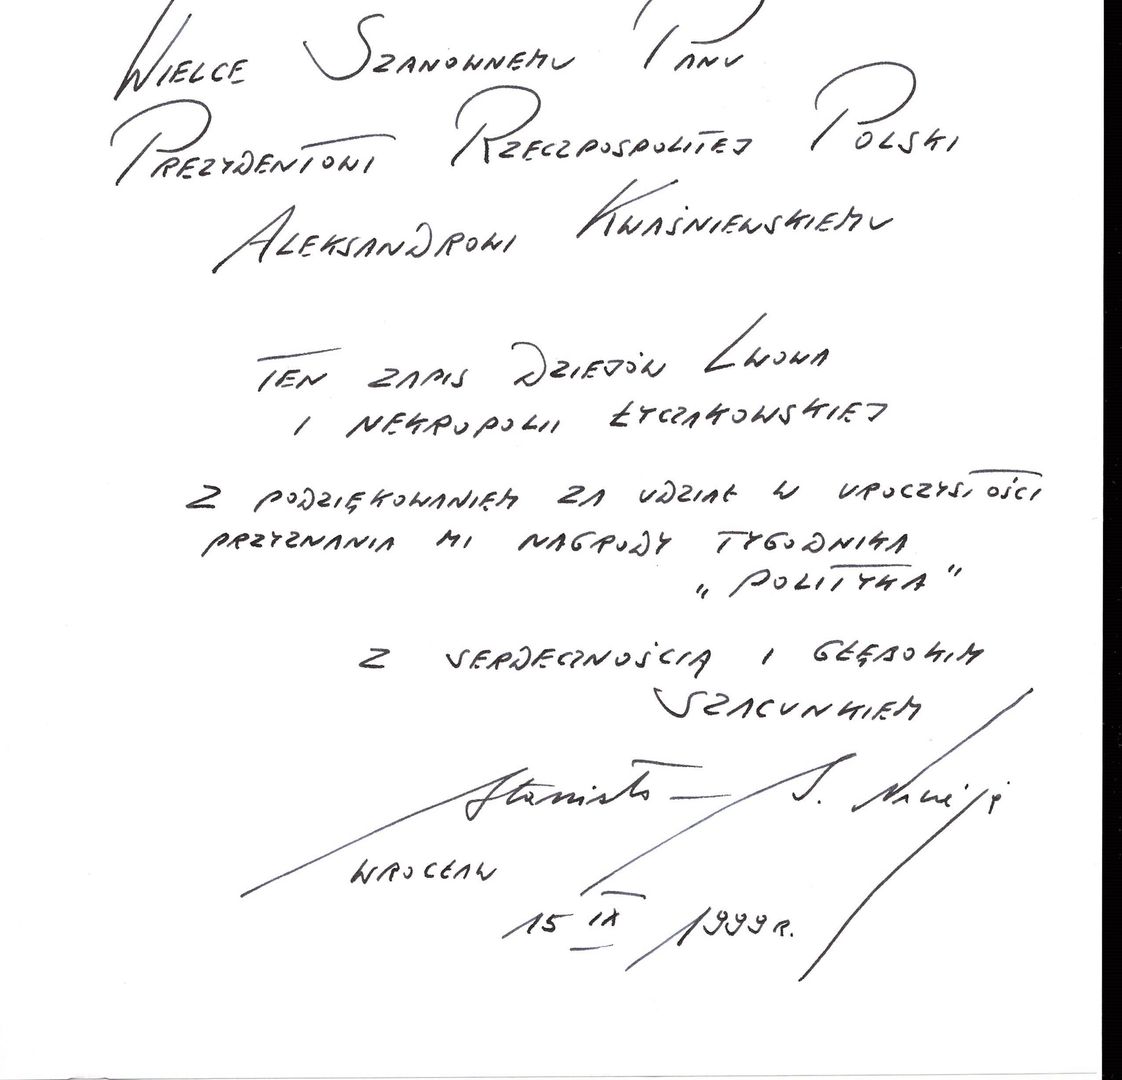 Wielce Szanownemu Panu
Prezydentowi Rzeczpospolitej Polski
Aleksandrowi Kwaśniewskiemu
Ten zapis Dziejów Lwowa
i nekropolii łyczakowskiej
z podziękowaniem za udział w uroczystości
przyznania mi nagrody tygodnika
„Polityka”
z serdecznością i głębokim
szacunkiem
Stanisław S. Nicieja
Wrocław
15 IX 1999 r.